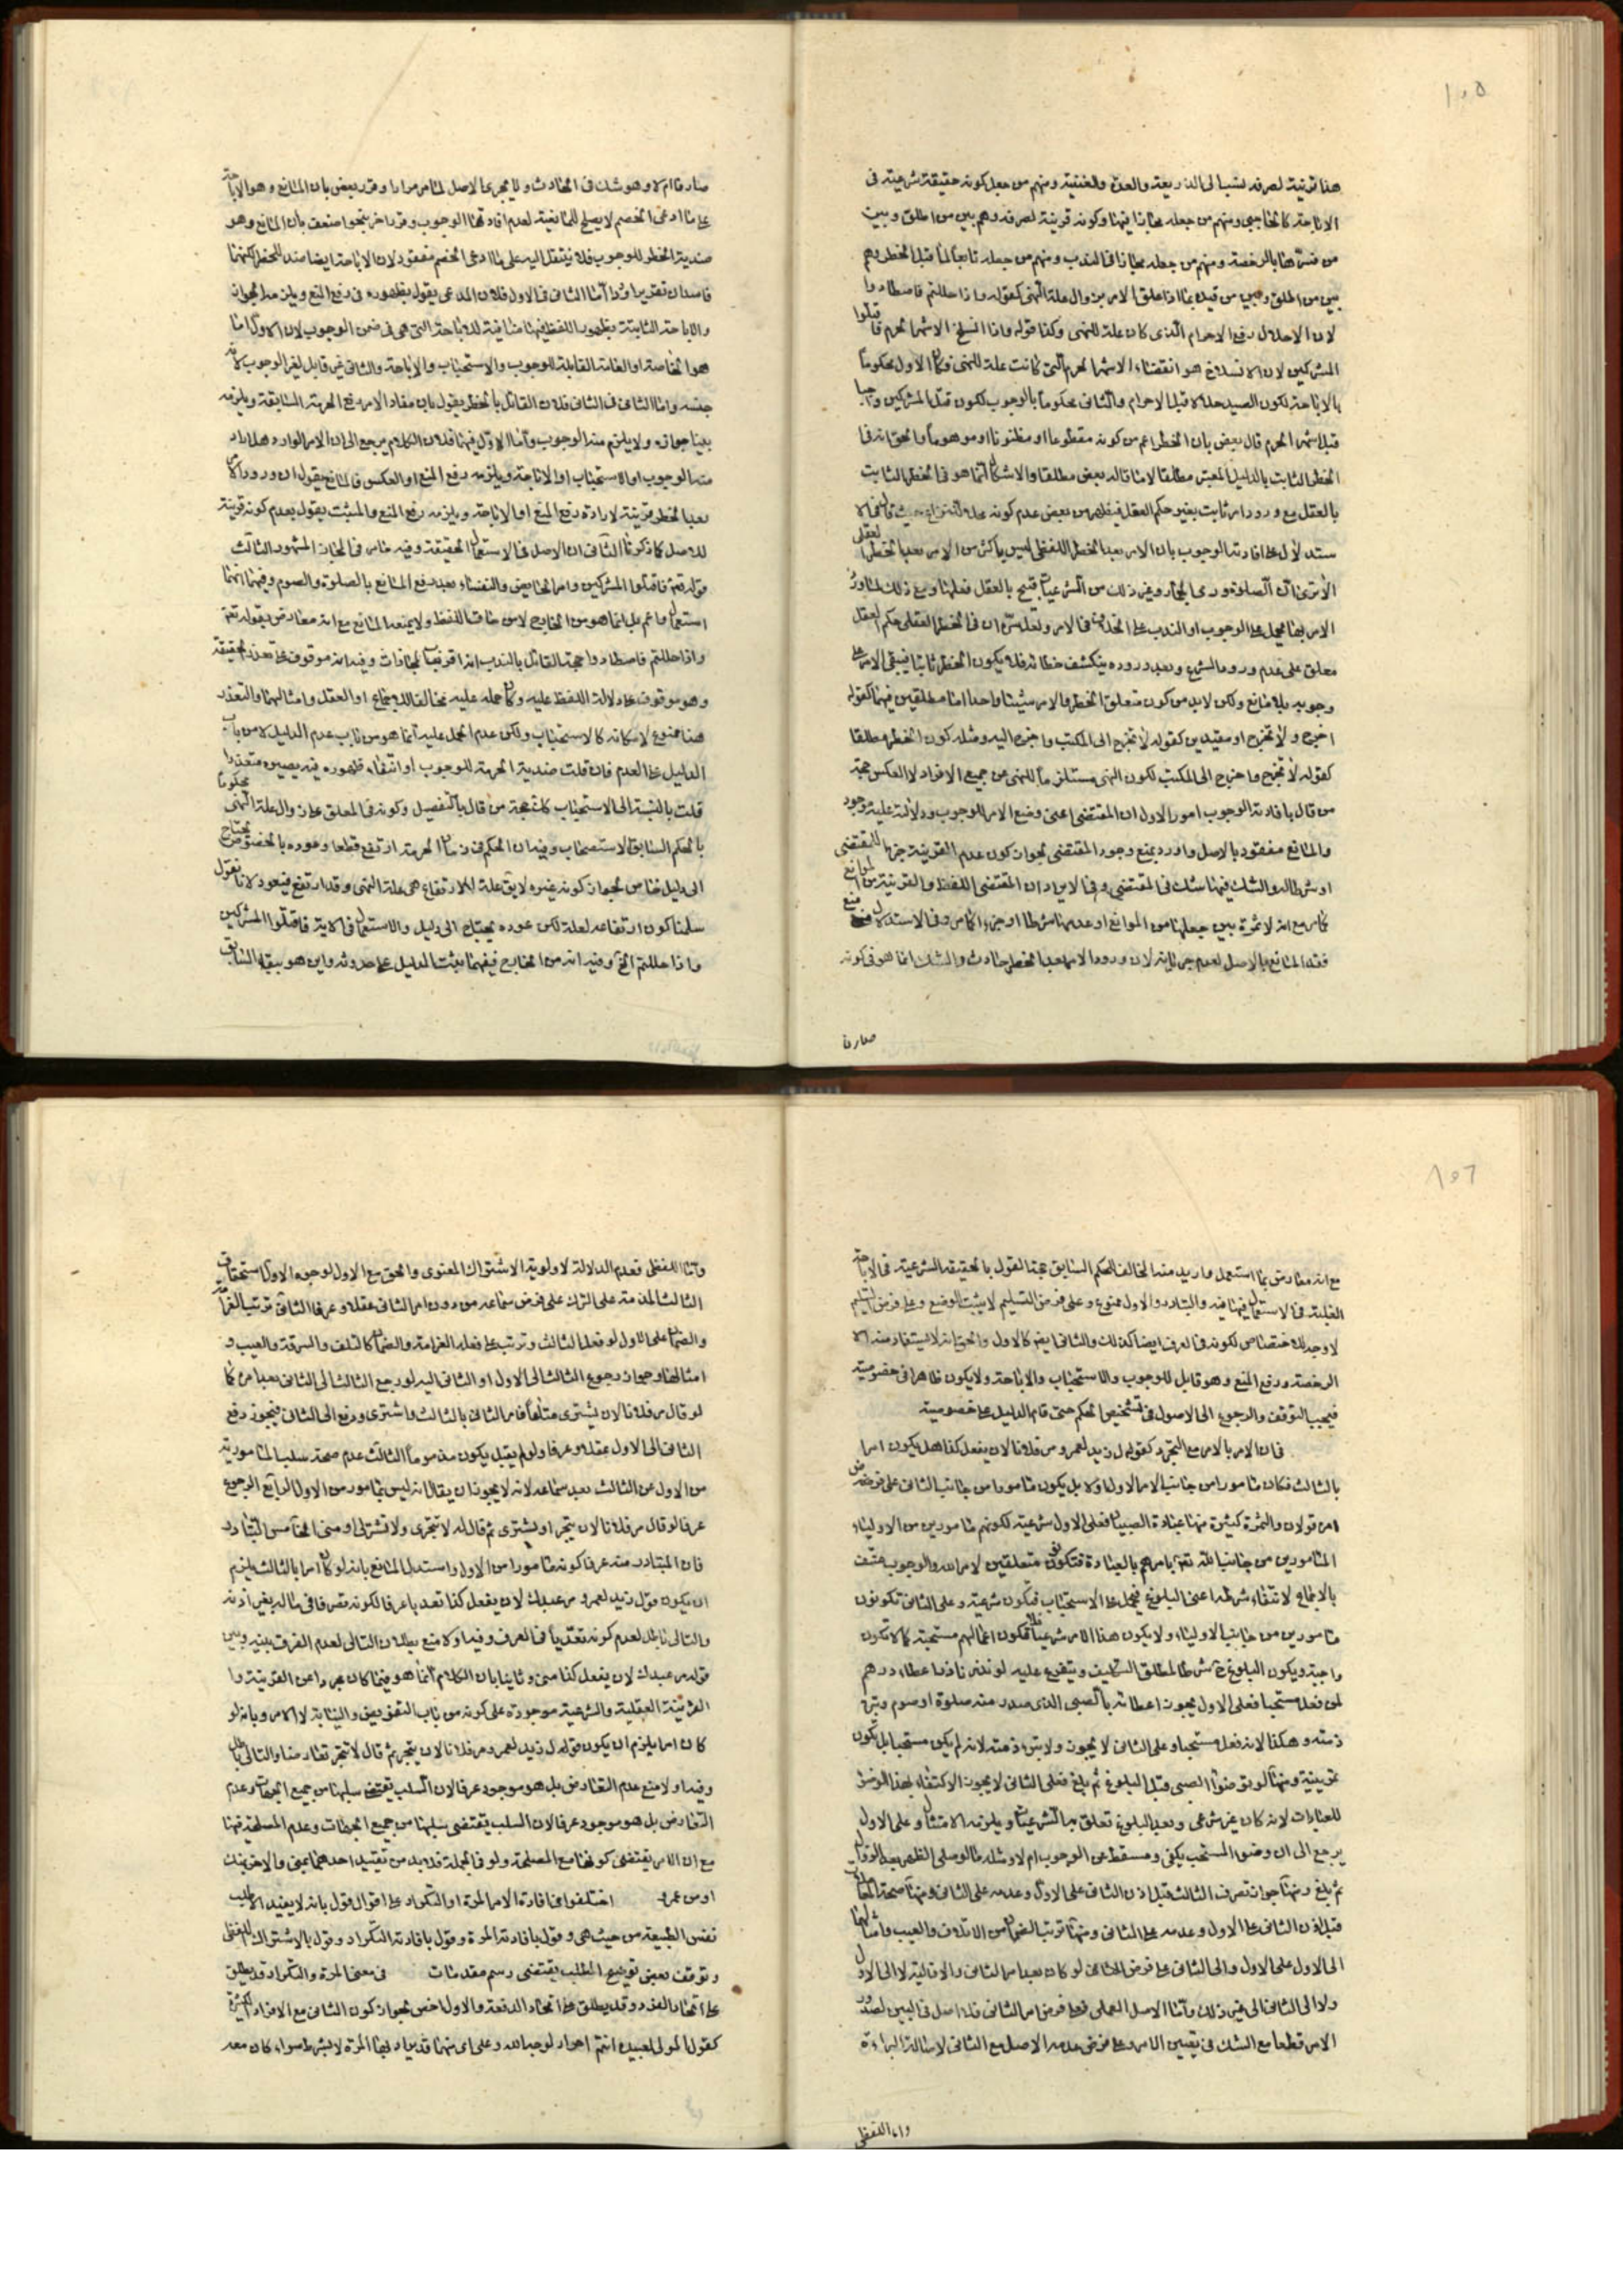 ١٠٥
هذا قرينة لصرفه نسب الى الذريعة والعدة والغنية ومنهم من جعل كونه حقيقة شرعية فى
الاباحة كالحاجبى ومنهم من جعله مجازا فيها وكونه قرينة لصرفه وهم بين من اطلق وبين
من فسرها بالرخصة ومنهم من جعله مجازا فى الندب ومنهم من جعله تابعا لما قبل الحظر وهم
بين من اطلق وبين من قيد بما اذا علق الامر بزوال علة النهى كقوله واذا حللتم فاصطادوا
لان الاحلال رفع الاحرام الذى كان علة للنهى وكذا قوله واذا انسلخ الاشهر الحرم فاقتلوا
المشركين لان الانسلاخ هو انقضاء الاشهر الحرم التى كانت علة للنهى وكان الاول محكوما
بالاباحة لكون الصيد حلالا قبل الاحرام والثانى محكوما بالوجوب لكون قتل المشركين واجبا
قبل اشهر الحرم قال بعض بان الحظر اعم من كونه مقطوعا او مظنونا او موهوما والحق انه فى
الحظر الثابت بالدليل المعتبر مطلقا لا ما قاله بعض مطلقا والاشكال انما هو فى الحظر الثابت
بالعقل مع ورود امر ثابت بغير حكم العقل فيظهر من بعض عدم كونه محل النزاع حيث قال فى الا
ستدلال على افادته الوجوب بان الامر بعد الحظر اللفظى ليس باكثر من الامر بعد الحظر العقلى
الا ترى ان الصلوة ورمى الجمار وغير ذلك من الشرعيات قبيح بالعقل فعلها ومع ذلك لما ورد
الامر بها يحمل على الوجوب او الندب على الخلاف فى الامر ولعل سره ان فى الحظر العقلى حكم العقل
معلق على عدم ورود الشرع وبعد وروده ينكشف خطائه فلا يكون الحظر ثابتا فيبقى الامر على
وجوبه بلا مانع ولكن لا بد من كون متعلق الحظر والامر شيئا واحدا اما مطلقين فيهما كقوله
اخرج ولا تخرج او مقيدين كقوله لا تخرج الى المكتب واخرج اليه ومثله كون الحظر مطلقا
كقوله لا تخرج واخرج الى المكتب لكون النهى مستلزما للنهى عن جميع الافراد لا العكس حجة
من قال بافادته الوجوب امور الاول ان المقتضى اعنى وضع الامر للوجوب ودلالته عليه موجود
والمانع مفقود بالاصل واورد بمنع وجود المقتضى لجواز كون عدم القرينة جزءا للمقتضى
او شرطا له والشك فيهما شك فى المقتضى وفى الايراد ان المقتضى اللفظ والقرينة من الموانع
كما مر مع انه لا ثمرة بين جعلها من الموانع او عدمها شرطا او جزء كما مر وفى الاستدلال منع
فقد المانع بالاصل لعدم جريانه لان ورود الامر بعد الحظر حادث والشك انما هو فى كونه
صارفا
صارفا ام لا وهو شك فى الحادث ولا يجرى بها الاصل لما مر مرارا وقرر بعض بان المانع وهو الاباحة
على ما ادعى الخصم لا يصلح للمانعية لعدم افادتها الوجوب وقرر اخر بنحو اضعف بان المانع وهو
ضدية الحظر للوجوب فلا ينتقل اليه على ما ادعى الخصم مفقود لان الاباحة ايضا ضد للحظر لكنهما
فاسدان تقريرا وردا اما الثانى فى الاول فلان المدعى يقول بظهوره فى رفع المنع ويلزمه الجواز
والاباحة الثابتة بظهور اللفظ فيها منافية للاباحة التى هى فى ضمن الوجوب لان الاول اما
هو الخاصة او العامة القابلة للوجوب والاستحباب والاباحة والثانى غير قابل لغير الوجوب لانه
جنسه واما الثانى فى الثانى فلان القائل بالحظر يقول بان مفاد الامر رفع الحرمة السابقة ويلزمه
بينا جوازه ولا يلزم منه الوجوب واما الاول فيهما فلان الكلام يرجع الى ان الامر الوارد هل اراد
منه الوجوب او الاستحباب او الاباحة ويلزمه رفع المنع او العكس فالمانع يقول ان ورود الامر
بعد الحظر قرينة لارادة رفع المنع او الاباحة ويلزمه رفع المنع والمثبت يقول بعدم كونه قرينة
للاصل كما ذكرنا الثانى ان الاصل فى الاستعمال الحقيقة وفيه ما مر فى المجاز المشهور الثالث
قوله تعم فاقتلوا المشركين وامر الحائض والنفساء بعد رفع المانع بالصلوة والصوم وفيهما انهما
استعمال واعم بل انما هو من الخارج لا من حاق اللفظ ولا يمنعه المانع مع انه معارض بقوله تعم
واذا حللتم فاصطادوا حجة القائل بالندب انه اقرب المجازات وفيه انه موقوف على تعذر الحقيقة
وهو موقوف على دلالة اللفظ عليه وكان حمله عليه مخالفا للاجماع او العقل وامثالهما والتعذر
هنا ممنوع لامكانه كالاستحباب ولكن عدم الحمل عليه انما هو من باب عدم الدليل لا من باب
الدليل على العدم فان قلت ضدية الحرمة للوجوب او انتفاء ظهوره فيه يصيره متعذرا
قلت بالنسبة الى الاستحباب كذلك حجة من قال بالتفصيل وكونه فى المعلق على زوال علة النهى محكوما
بالحكم السابق الاستصحاب وفيه ان الحكم فى زمان الحرمة ارتفع قطعا وعوده بالخصوص يحتاج
الى دليل خاص لجواز كونه غيره لا يق علة الارتفاع هى علة النهى وقد ارتفع فيعود لانا نقول
سلمنا كون ارتفاعه لعلة لكن عوده يحتاج الى دليل والاستعمال فى الاية فاقتلوا المشركين
واذا حللتم الخ وفيه انه من الخارج فيهما بعثت الدليل على حدوثه واين هو ببقاء السابق
١٠٦
مع انه معارض بما استعمل واريد منه المخالف الحكم السابق حجة القول بالحقيقة الشرعية فى الاباحة
الغلبة فى الاستعمال فيها فيه والتبادر والاول ممنوع وعلى فرض التسليم لا يثبت الوضع وعلى فرض التسليم
لا وجه للاختصاص لكونه فى العرف ايضا كذلك والثانى ايضا كالاول والحق انه لا يستفاد منه الا
الرخصة ورفع المنع وهو قابل للوجوب والاستحباب والاباحة ولا يكون ظاهرا فى خصوصية
فيجب التوقف والرجوع الى الاصول فى تشخيص الحكم حتى قام الدليل على خصوصية
فى ان الامر بالامر مع التجرد كقول زيد لعمرو مر فلانا لان يفعل كذا هل يكون امرا
بالثالث فكان مأمورا من جانب الامر الاول او لا بل يكون مأمورا من جانب الثانى على فرض
امره قولان والثمرة كثيرة منها عبادة الصبيان فعلى الاول شرعية لكونهم مأمورين من الاولياء
المأمورين من جانب الله تعم بامرهم بالعبادة فتكون متعلقين لامر الله والوجوب منتف
بالاجماع لانتفاء شرطه اعنى البلوغ فيحمل على الاستحباب فتكون شرعية وعلى الثانى تكونون
مأمورين من جانب الاولياء ولا يكون هذا الامر شرعيا فلا تكون اعمالهم مستحبة كما لا تكون
واجبة ويكون البلوغ ح شرطا لمطلق التكليف ويتفرع عليه لو نذر ناذر اعطاء درهم
لمن فعل مستحبا فعلى الاول يجوز اعطائه بالصبى الذى صدر منه صلوة او صوم وتبرء
ذمته وهكذا لانه فعل مستحبا وعلى الثانى لا يجوز ولا تبرء ذمته لانه لم يكن مستحبا بل تكون
تمرينية ومنها لو توضوء الصبى قبل البلوغ ثم بلغ فعلى الثانى لا يجوز الاكتفاء بهذا الوضوء
للعبادات لانه كان غير شرعى وبعد البلوغ تعلق به الشرعيات ويلزمه الامتثال وعلى الاول
يرجع الى ان وضوء المستحب يكفى ومسقط عن الوجوب ام لا ومثله ما لو صلى الظهر بعد الزوال
ثم بلغ ومنها جواز تصرف الثالث قبل اذن الثانى على الاول وعدمه على الثانى ومنها صحة المعاملات
قبل اذن الثانى على الاول وعدمه على الثانى ومنها ترتب الضمان من الاتلاف والعيب وامثالهما
الى الاول على الاول والى الثانى على فرض الثانى لو كان بعد امر الثانى والاقالة لا الى الاول
ولا الى الثانى الى غير ذلك واما الاصل العملى فعلى فرض امر الثانى فلا اصل فى البين لصدور
الامر قطعا مع الشك فى تعيين الامر وعلى فرض عدمه الاصل مع الثانى لاصالة البراءة
واما اللفظى
واما اللفظى فعدم الدلالة لاولوية الاشتراك المعنوى والحق مع الاول لوجوه الاول استحقاق
الثالث المذمة على الترك على فرض سماعه من دون امر الثانى عقلا وعرفا الثانى ترتب الغرامة
والضمان على الاول لو فعل الثالث وترتب على فعله الغرامة والضمان كالتلف والسرقة والعيب و
امثالها وجواز رجوع الثالث الى الاول او الثانى اليه لو رجع الثالث الى الثانى بعد امره كما
لو قال مر فلانا لان يشترى متاعا فامر الثانى بالثالث واشترى ودفع الى الثانى فيجوز دفع
الثانى الى الاول عقلا وعرفا ولو لم يقبل يكون مذموما الثالث عدم صحة سلب المأمورية
من الاول عن الثالث بعد سماعه لانه لا يجوز ان يقال انه ليس بمأمور من الاول الرابع الرجوع
عرفا لو قال مر فلانا لان يتجر او يشترى ثم قال له لا تتجر ولا تشتر الى او منى الخامس التبادر
فان المتبادر منه عرفا كونه مأمورا من الاول واستدل المانع بانه لو كان امرا بالثالث يلزم
ان يكون قول زيد لعمرو مر عبدك لان يفعل كذا تعديا عرفا لكونه تصرفا فى ماله بغير اذنه
والتالى باطل لعدم كونه تعديا فى العرف وفيه اولا منع بطلان التالى لعدم الفرق بينه وبين
قوله مر عبدك لان يفعل كذا منى وثانيا بان الكلام انما هو فيما كان مجردا عن القرينة وا
القرينة العقلية والشرعية موجودة على كونه من باب التفويض والنيابة لا الامر وبانه لو
كان امرا يلزم ان يكون قول زيد لعمرو مر فلانا لان يتجر ثم قال لا تتجر تعارضا والتالى باطل
وفيه اولا منع عدم التعارض بل هو موجود عرفا لان السلب يقتضى سلبها من جميع الجهات وعدم
التعارض بل هو موجود عرفا لان السلب يقتضى سلبها من جميع الجهات وعدم المسلحة فيها
مع ان الامر يقتضى كونها مع المصلحة ولو فى الجملة فلا بد من تقييد احدهما بمنى والاخر بنك
او من عمرو اختلفوا فى افادة الامر المرة او التكرار على اقوال قول بانه لا يفيد الا طلب
نفس الطبيعة من حيث هى وقول بافادته المرة وقول بافادته التكرار وقول بالاشتراك اللفظى
وتوقف بعض توضيح المطلب يقتضى رسم مقدمات فى معنى المرة والتكرار قد يطلق
على اتحاد الفرد وقد يطلق على اتحاد الدفعة والاول اخص لجواز كون الثانى مع الافراد الكثيرة
كقول المولى لعبيده انتم احرار لوجه الله وعلى اى منهما قد يراد بها المرة لا بشرط سواء كان معه